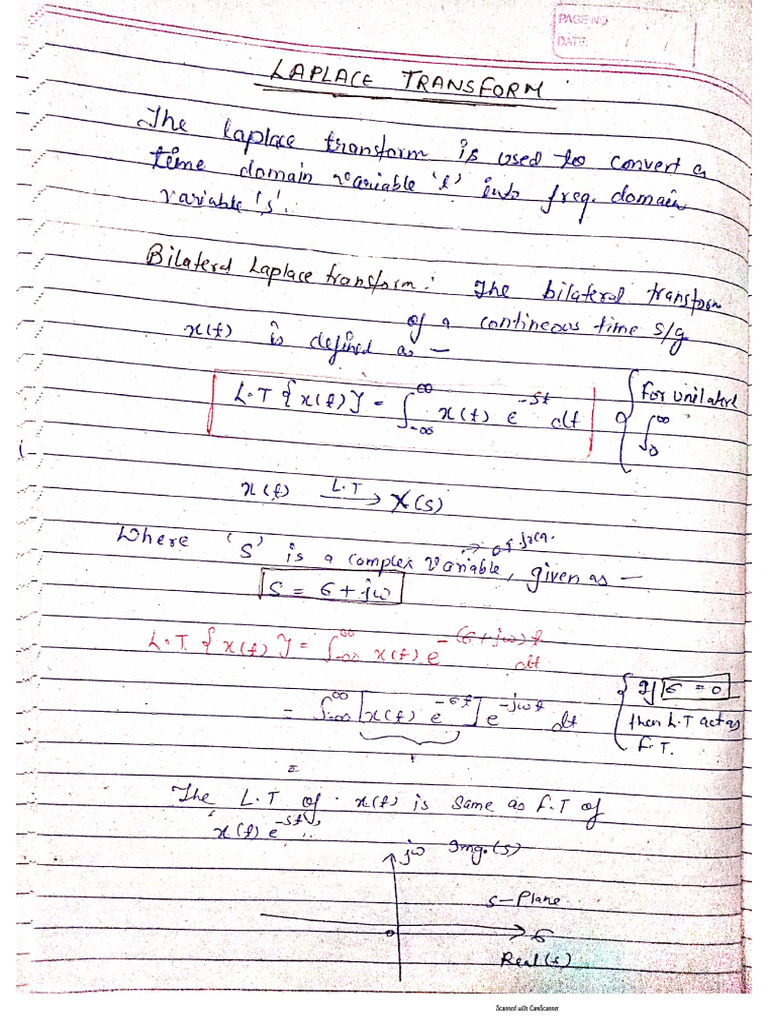 PAGE NO
DATE: / /
LAPLACE TRANSFORM
The Laplace transform is used to convert a
time domain variable 't' into freq. domain
variable 's'.
Bilateral Laplace transform: The bilateral transform
of a contineous time s/g
x(t) is defined as —
L.T {x(t)} = ∫_{-∞}^{∞} x(t) e^{-st} dt
{ For unilateral
∫_0^∞
x(t) —L.T→ X(s)
Where 's' is a complex variable, → or freq. given as —
s = σ + jω
L.T. {x(t)} = ∫_{-∞}^{∞} x(t) e^{-(σ+jω)t} dt
= ∫_{-∞}^{∞} [x(t) e^{-σt}] e^{-jωt} dt
{ If σ = 0
then L.T act as
F.T.
The L.T of x(t) is same as F.T of
x(t) e^{-st}
jω Img.(s)
s-Plane
0 σ
Real(s)
Scanned with CamScanner